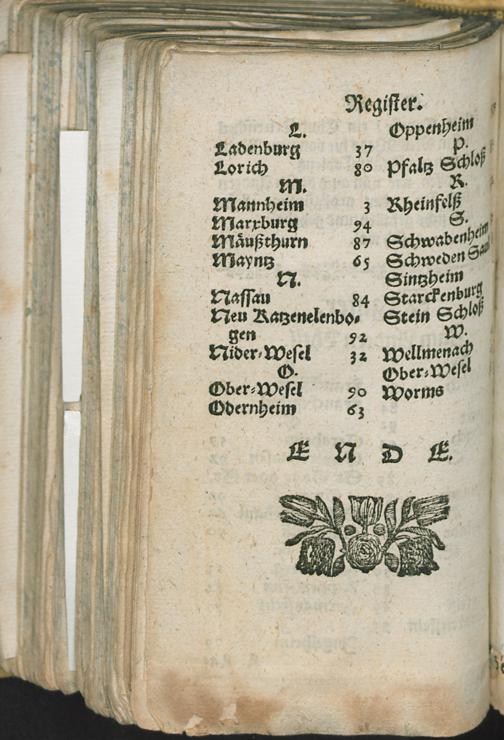 Register.
L.
Ladenburg 37
Lorich 80
M.
Mannheim 3
Marxburg 94
Mäußthurn 87
Mayntz 65
N.
Nassau 84
Neu Katzenelenbo-
gen 92
Nider-Wesel 32
O.
Ober-Wesel 90
Odernheim 63
Oppenheim
P.
Pfaltz Schloß
R.
Rheinfelß
S.
Schwabenheim
Schweden
Sintzheim
Starckenburg
Stein Schloß
W.
Wellmenach
Ober-Wesel
Worms
E N D E.